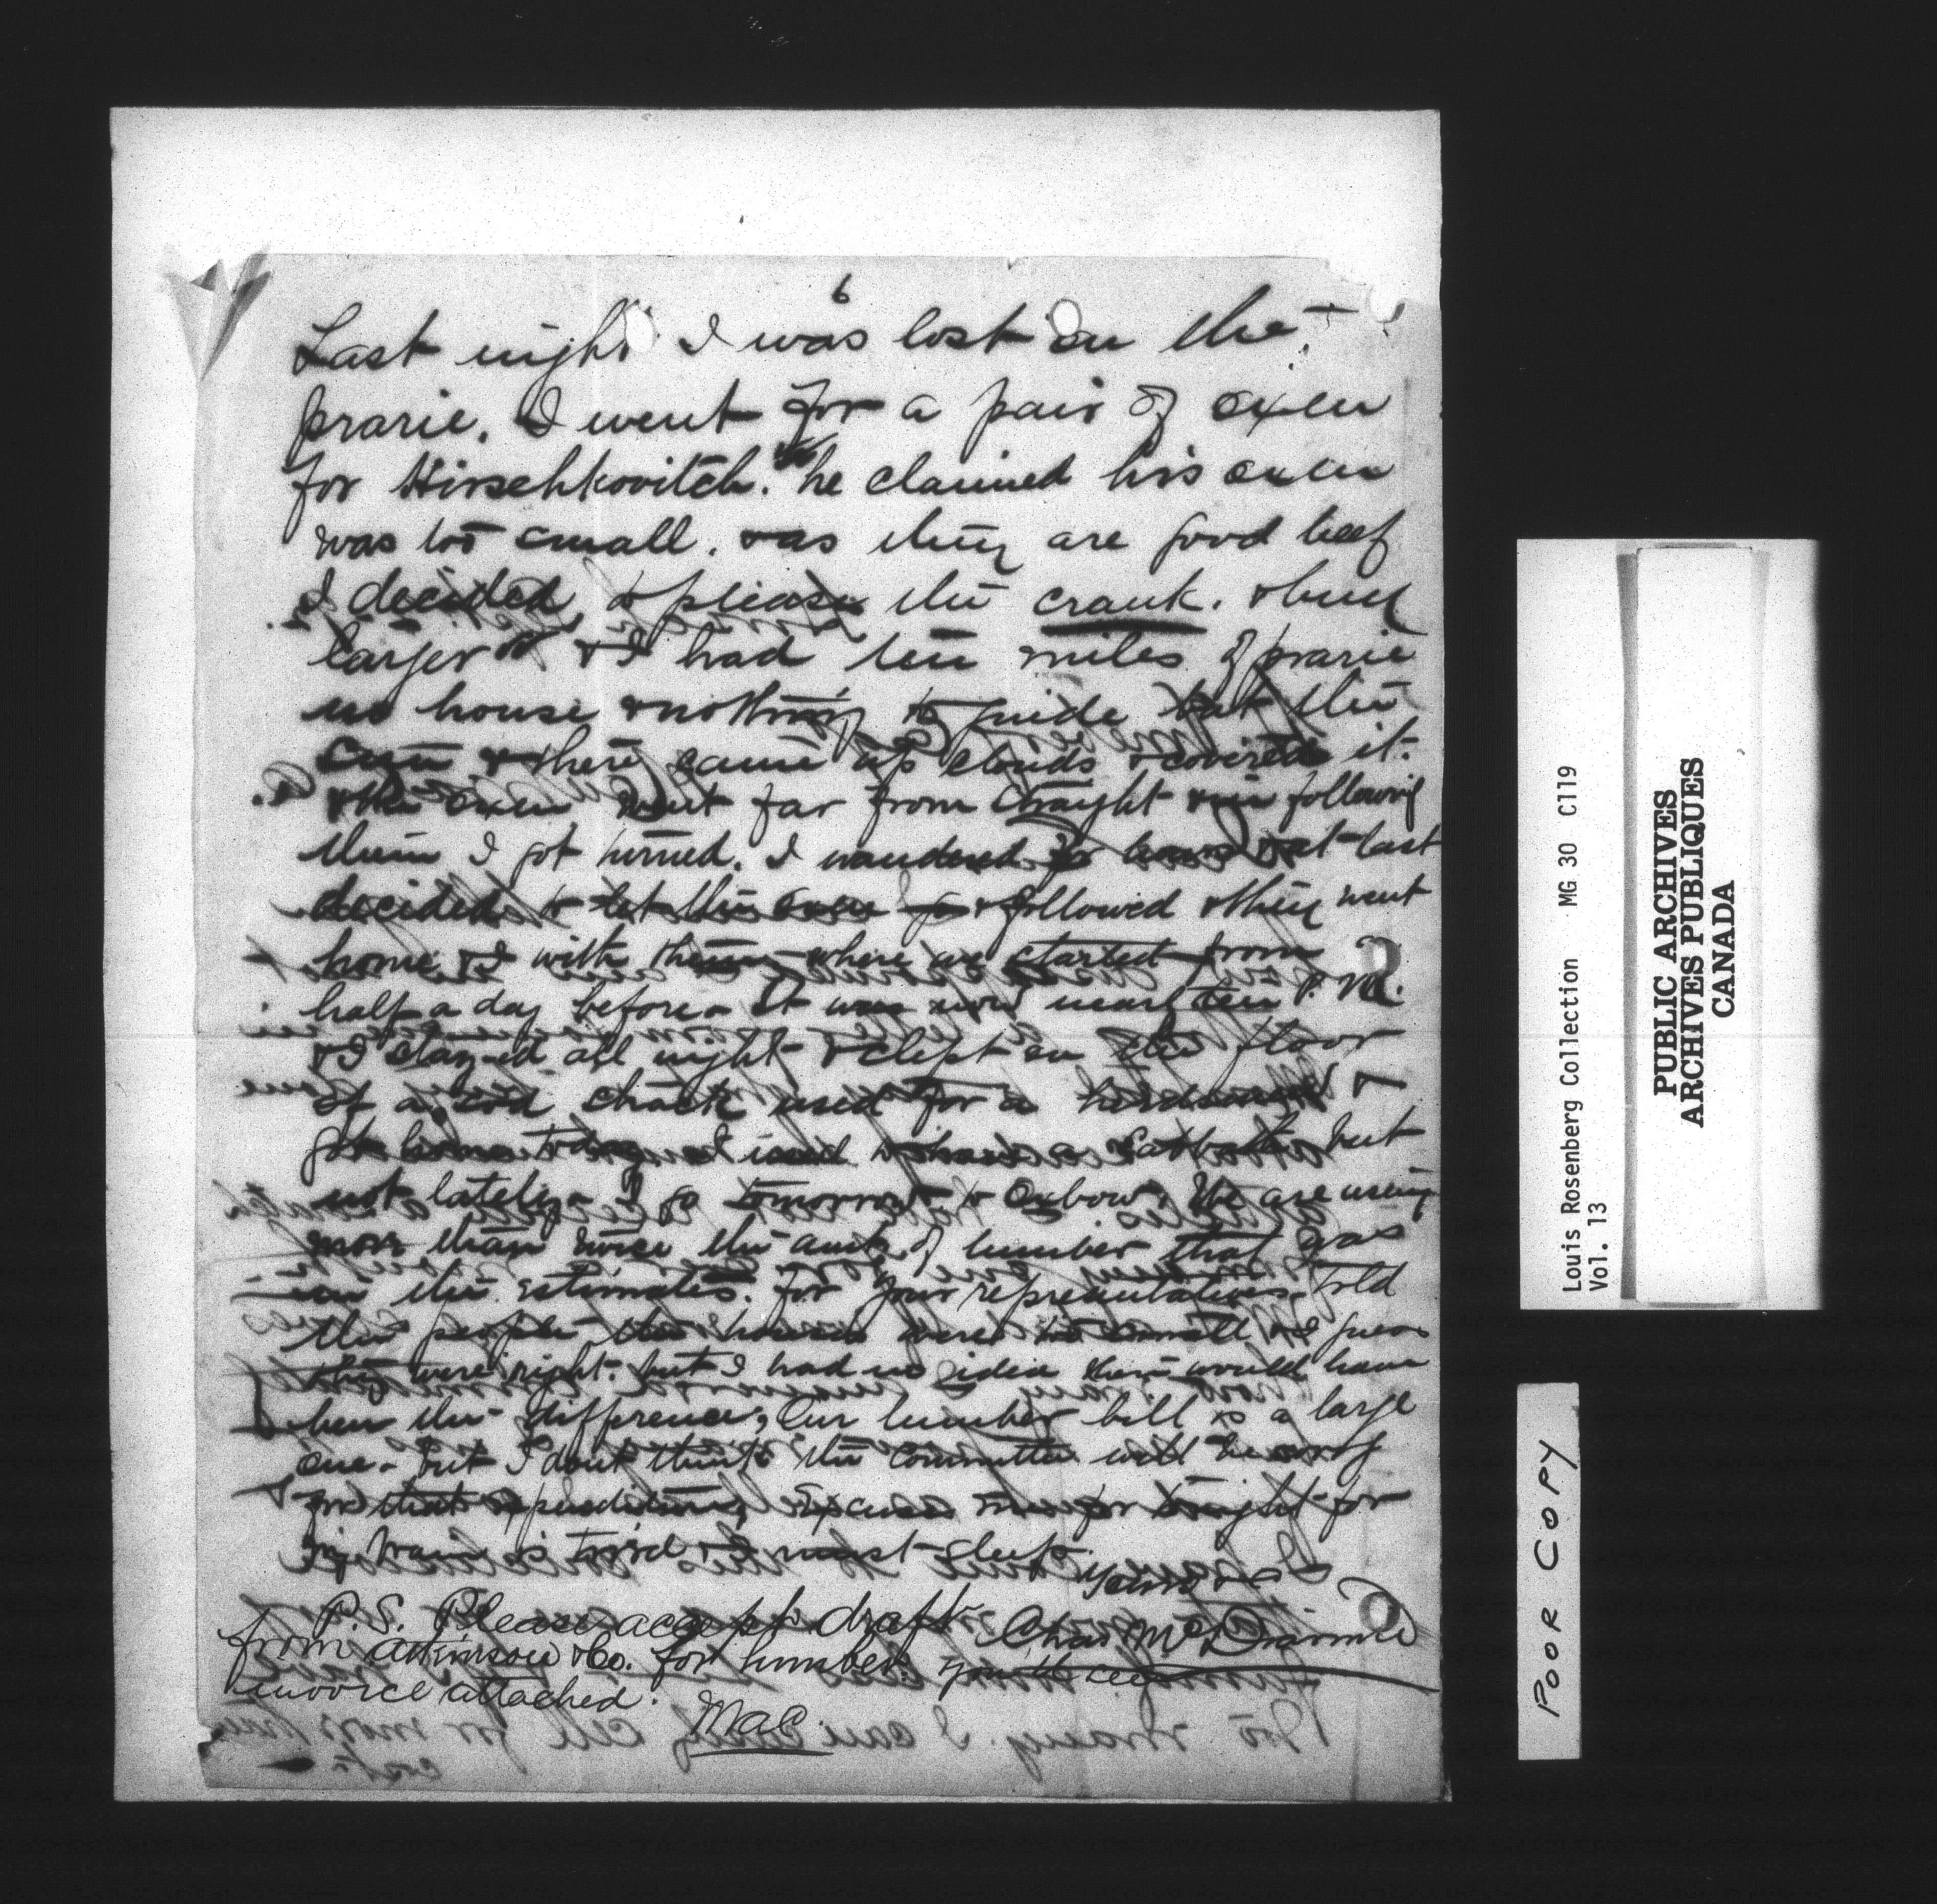 6
Last night I was lost on the
prarie. I went for a pair of oxen
for Hirschkovitch. he claimed his oxen
was too small. & as they are good beef
I decided to please the crank. & buy
larger & I had ten miles of prarie
no house & nothing to guide but the
sun & there came up clouds & covered it.
& the oxen went far from straight & in following
them I got turned. I wandered for hours & at last
decided to let the oxen go & followed & they went
home & I with them where we started from
half a day before. It was now near ten P.M.
& I stayed all night & slept on the floor
of a sod shack used for a herdsman &
got home today I used to have a Sabbath but
not lately. I go tomorrow to Oxbow. We are using
more than twice the amt. of lumber that was
in the estimates. for your representatives told
the people the houses were too small & I guess
they were right. but I had no idea there would have
been the difference, Our lumber bill is a large
one. but I dont think the committee will be
for that expenditure, Excuse me for tonight for
my brain is tired & I must sleep.
Yours
Chas Mc
P.S. Please accept draft
from Atkinson & Co. for lumber. you'll see
invoice attached.
Mac.
Louis Rosenberg Collection MG 30 C119
Vol. 13
PUBLIC ARCHIVES
ARCHIVES PUBLIQUES
CANADA
POOR COPY